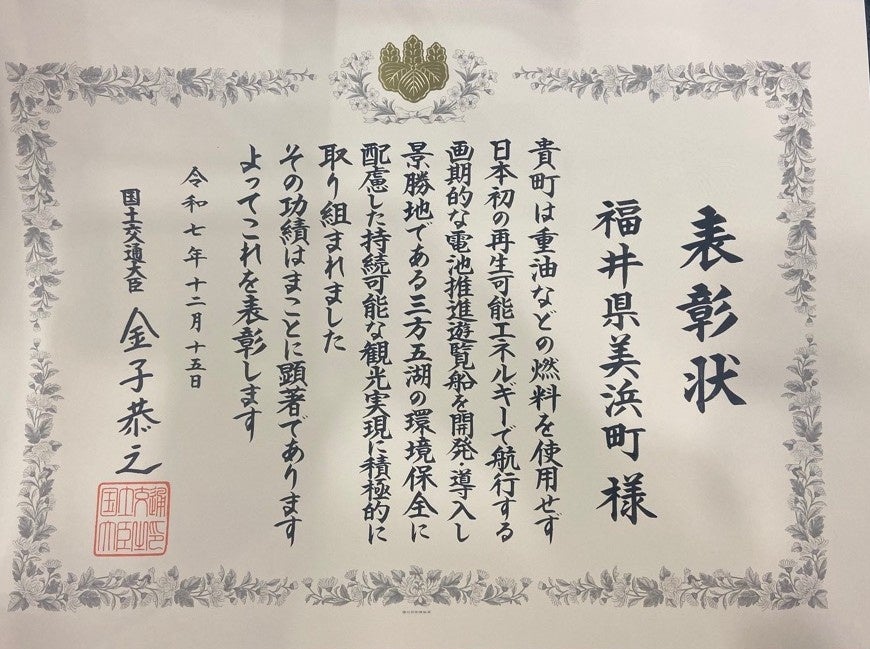 表彰状
福井県美浜町 様
貴町は重油などの燃料を使用せず
日本初の再生可能エネルギーで航行する
画期的な電池推進遊覧船を開発・導入し
景勝地である三方五湖の環境保全に
配慮した持続可能な観光実現に積極的に
取り組まれました
その功績はまことに顕著であります
よってこれを表彰します
令和七年十二月十五日
国土交通大臣 金子恭之
国土交通大臣之印